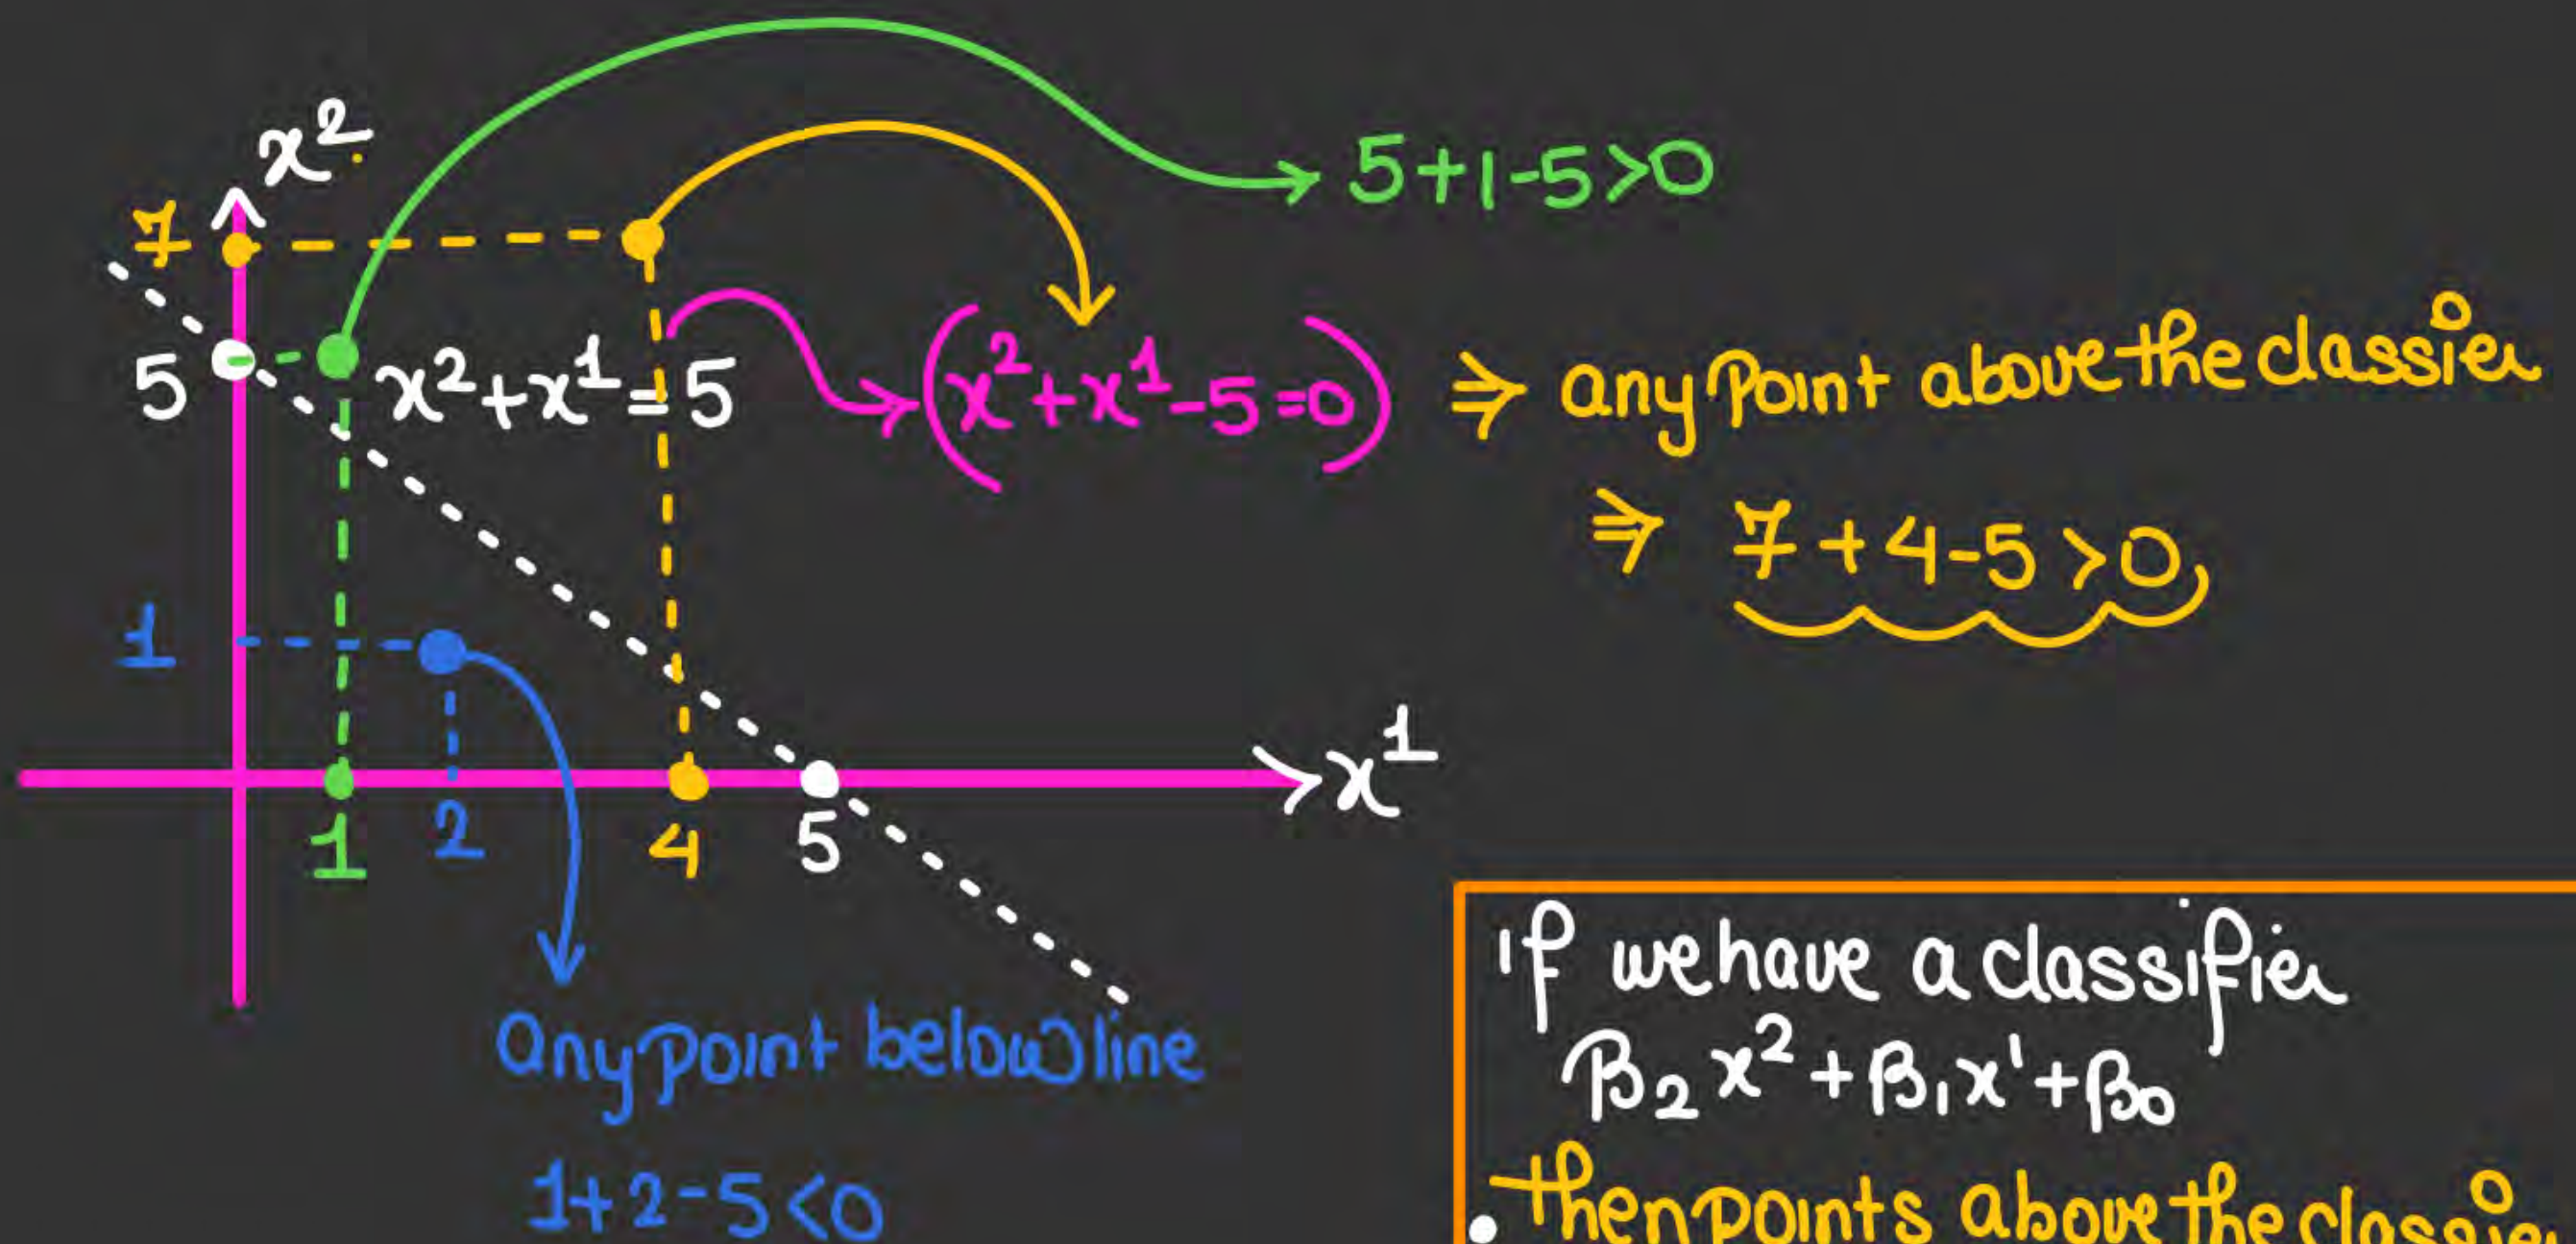 x²
5+1-5>0
7
5
x²+x¹=5
(x²+x¹-5=0)
⇒ any point above the classier
⇒ 7+4-5>0
1
x¹
1
2
4
5
any point below line
1+2-5<0
if we have a classifier
β₂x²+β₁x¹+β₀
• then points above the classier